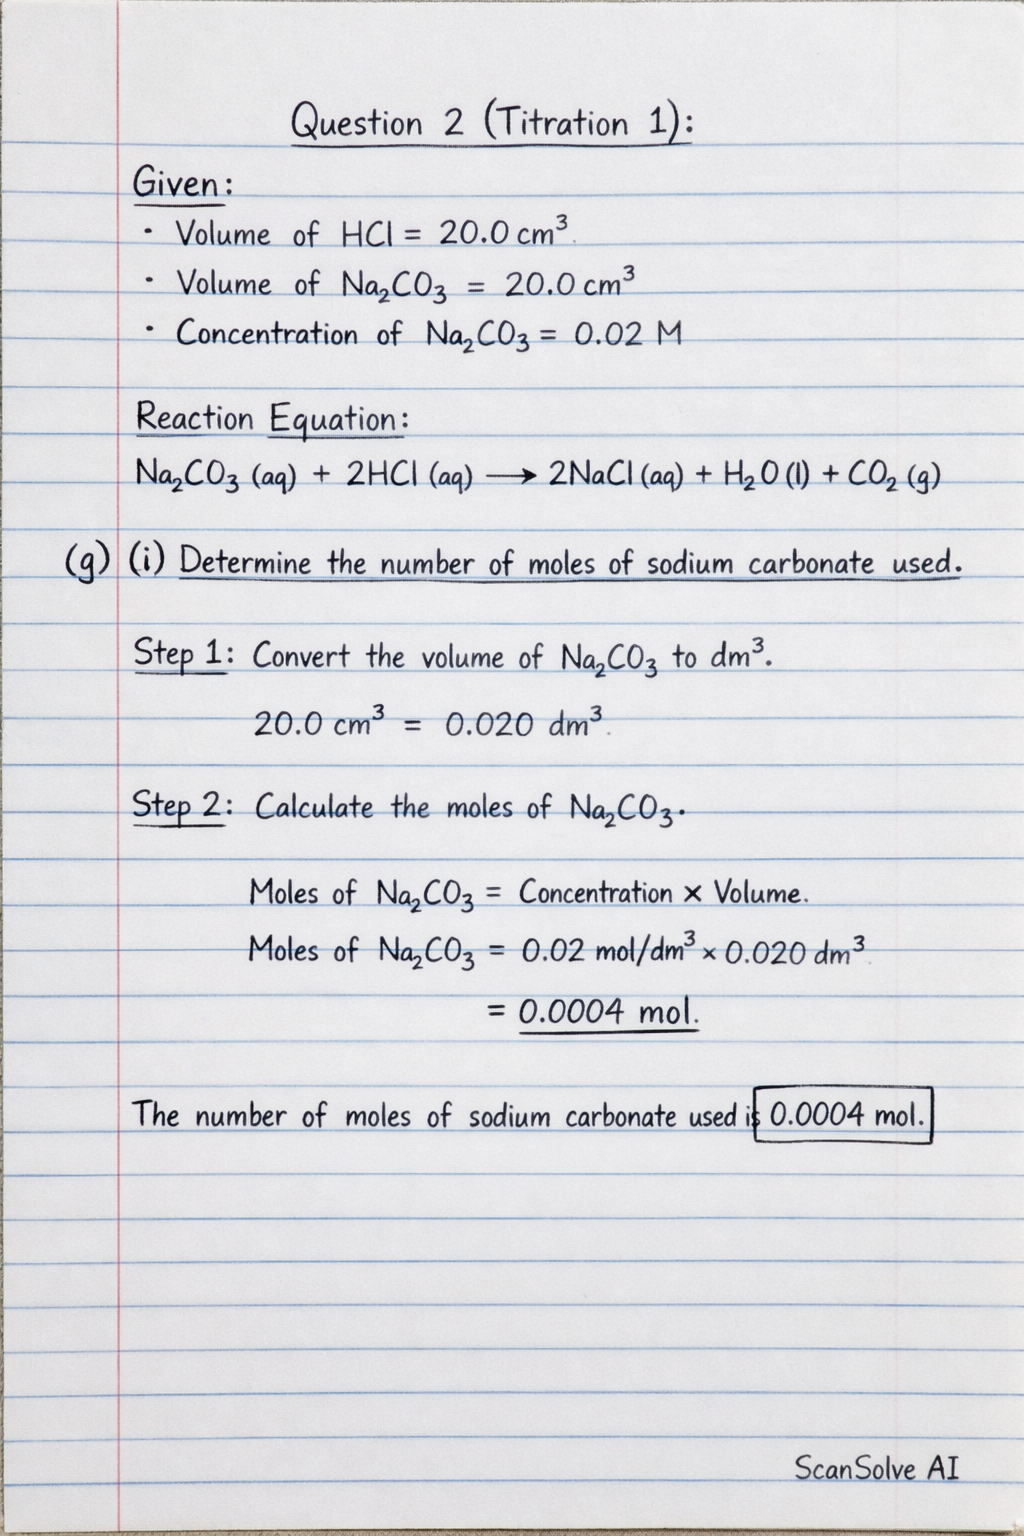 Question 2 (Titration 1):
Given:
· Volume of HCl = 20.0 cm³.
· Volume of Na₂CO₃ = 20.0 cm³
· Concentration of Na₂CO₃ = 0.02 M
Reaction Equation:
Na₂CO₃ (aq) + 2HCl (aq) ⟶ 2NaCl (aq) + H₂O (l) + CO₂ (g)
(g) (i) Determine the number of moles of sodium carbonate used.
Step 1: Convert the volume of Na₂CO₃ to dm³.
20.0 cm³ = 0.020 dm³.
Step 2: Calculate the moles of Na₂CO₃.
Moles of Na₂CO₃ = Concentration × Volume.
Moles of Na₂CO₃ = 0.02 mol/dm³ × 0.020 dm³.
= 0.0004 mol.
The number of moles of sodium carbonate used is 0.0004 mol.
ScanSolve AI